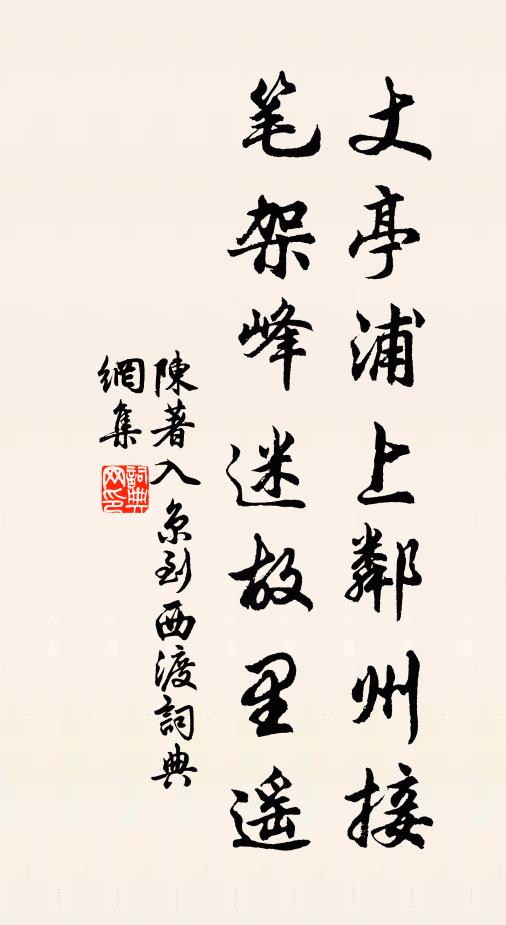 丈亭浦上鄰州接
笔架峰迷故里遥
陳著入京到西渡詞典
網集
詞典網印